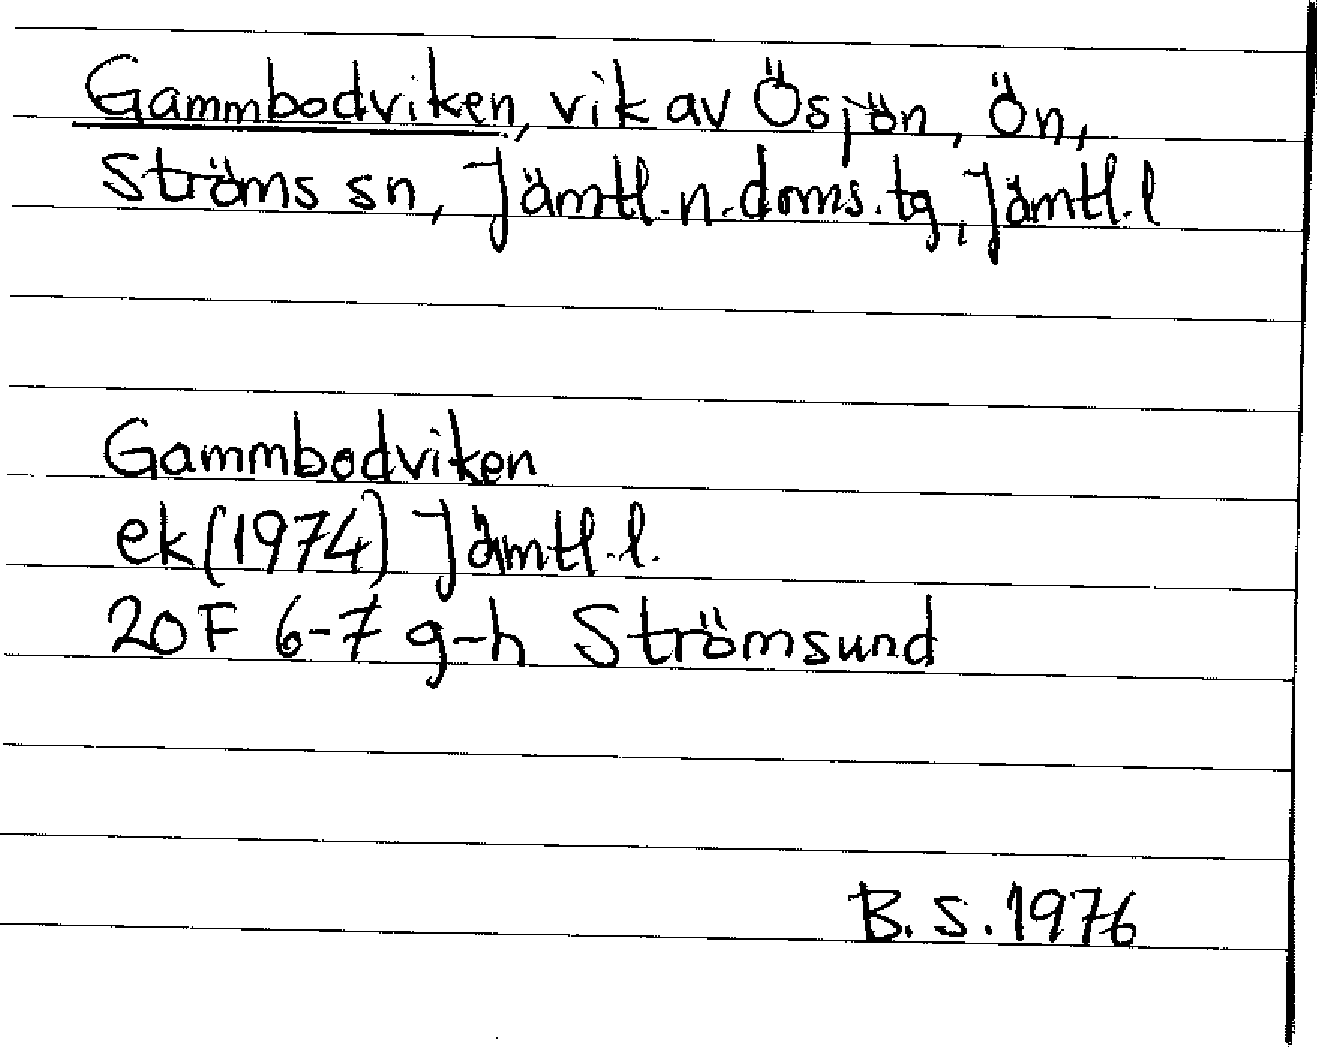 Gammbodviken, vik av Ösjön, Ön,
Ströms sn, Jämtl.n.doms.tg, Jämtl.l
Gammbodviken
ek (1974) Jämtl.l.
20F 6-7 g-h Strömsund
B.S. 1976